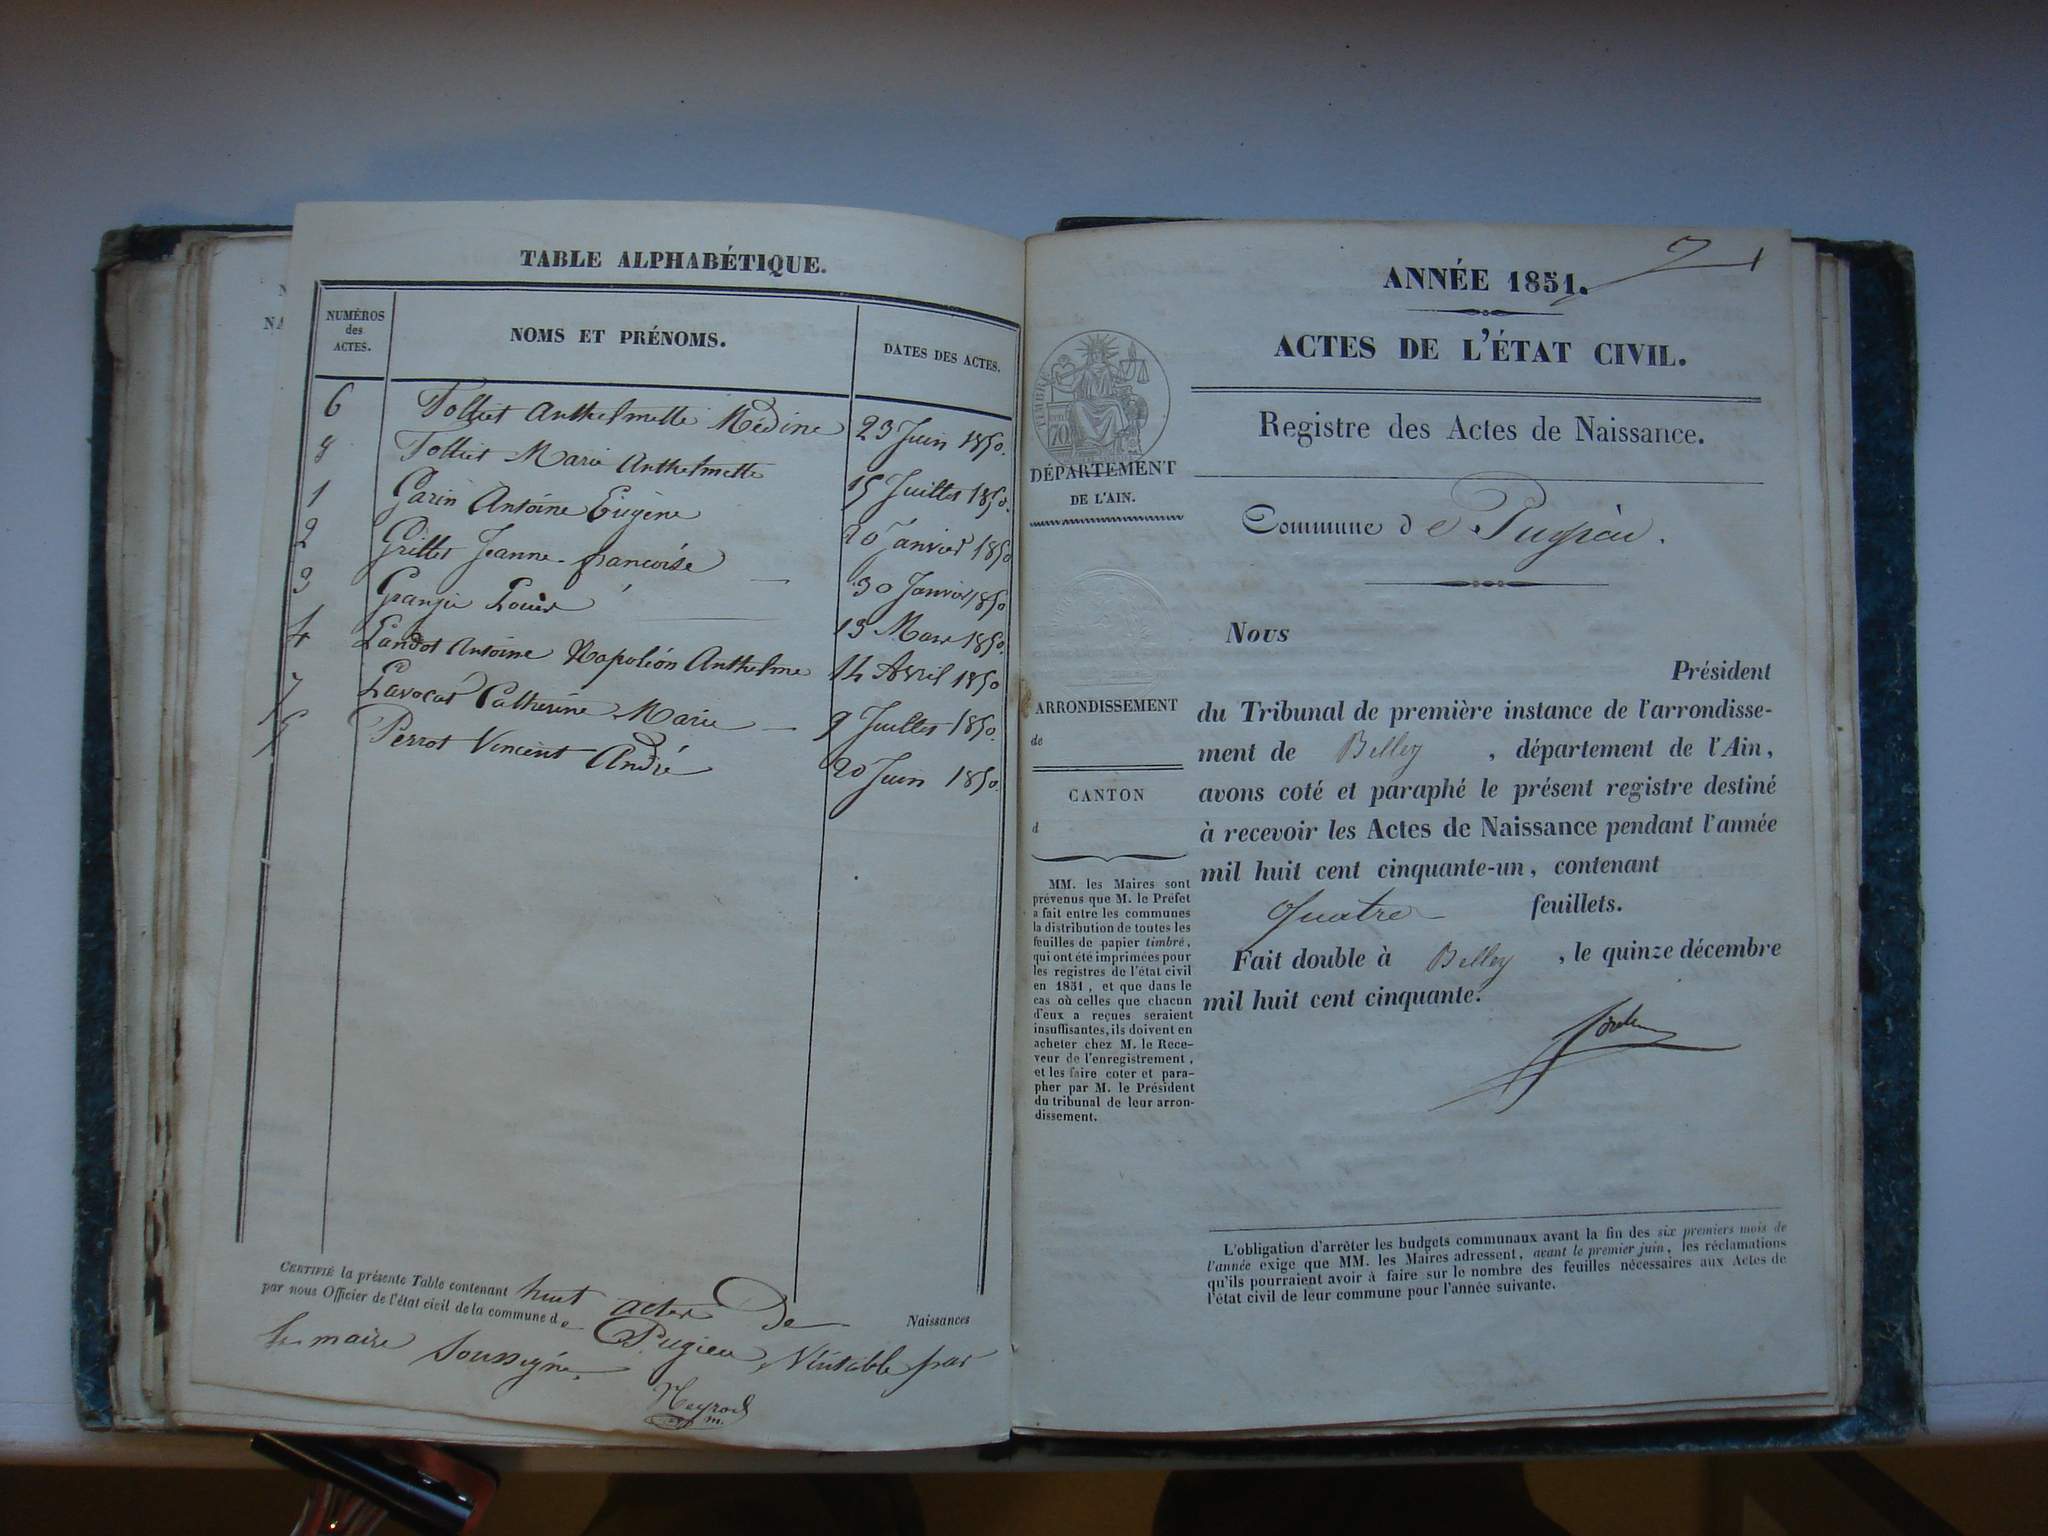 TABLE ALPHABÉTIQUE.
NUMÉROS des ACTES.
NOMS ET PRÉNOMS.
DATES DES ACTES.
6 Tolliet Anthelmette Médine 23 Juin 1850.
8 Tolliet Marie Anthelmette 15 Juillet 1850.
1 Garin Antoine Eugène 20 Janvier 1850
2 Grillet Jeanne-françoise 30 Janvier 1850
3 Grangie Louis 13 Mars 1850.
4 Landot Antoine Napoléon Anthelme 14 Avril 1850
7 Lavocat Catherine Marie 9 Juillet 1850.
Perrot Vincent André 20 Juin 1850.
CERTIFIÉ la présente Table contenant huit actes De Naissances
par nous Officier de l'état civil de la commune de Pugieu, Véritable par
le maire Soussigné.
m.
ANNÉE 1851.
1
ACTES DE L'ÉTAT CIVIL.
Registre des Actes de Naissance.
Commune de Pugieu.
TIMBRE
70
DÉPARTEMENT
DE L'AIN.
ARRONDISSEMENT
de
CANTON
d
MM. les Maires sont
prévenus que M. le Préfet
a fait entre les communes
la distribution de toutes les
feuilles de papier timbré,
qui ont été imprimées pour
les registres de l'état civil
en 1851, et que dans le
cas où celles que chacun
d'eux a reçues seraient
insuffisantes, ils doivent en
acheter chez M. le Rece-
veur de l'enregistrement,
et les faire coter et para-
pher par M. le Président
du tribunal de leur arron-
dissement.
Nous
Président
du Tribunal de première instance de l'arrondisse-
ment de Belley, département de l'Ain,
avons coté et paraphé le présent registre destiné
à recevoir les Actes de Naissance pendant l'année
mil huit cent cinquante-un, contenant
Quatre feuillets.
Fait double à Belley, le quinze décembre
mil huit cent cinquante.
L'obligation d'arrêter les budgets communaux avant la fin des six premiers mois de
l'année exige que MM. les Maires adressent, avant le premier juin, les réclamations
qu'ils pourraient avoir à faire sur le nombre des feuilles nécessaires aux Actes de
l'état civil de leur commune pour l'année suivante.